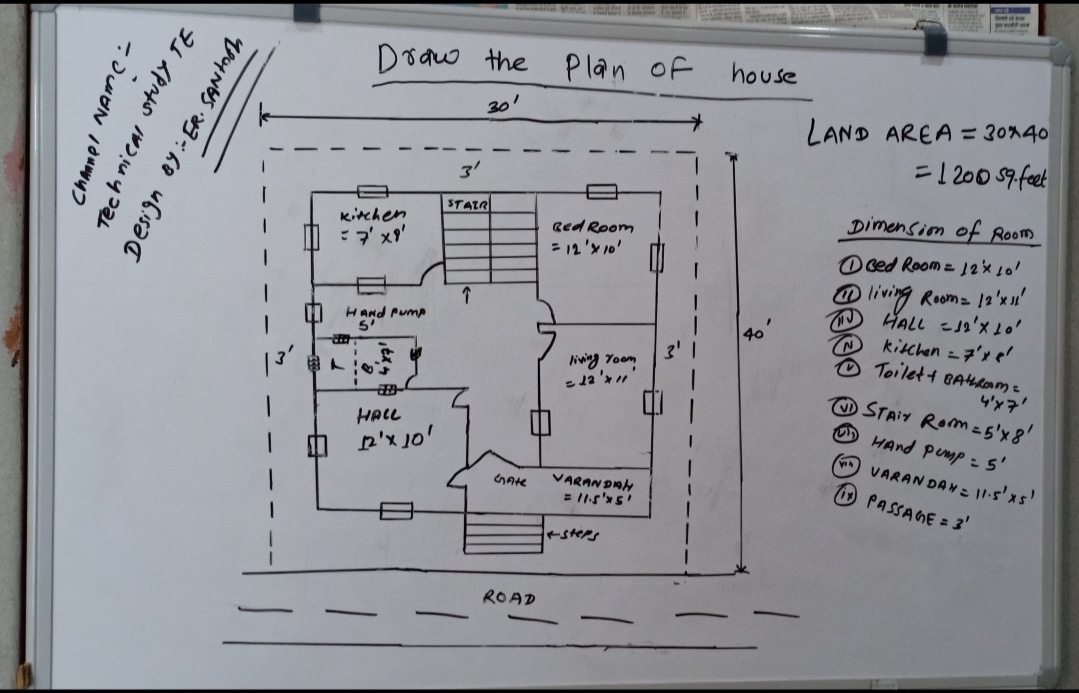 Channel Name:-
Technical study TE
Design By:- ER. SANTOSH
Draw the Plan of house
30'
LAND AREA = 30x40
= 1200 sq.feet
3'
Kitchen
= 7' x8'
STAIR
Bed Room
= 12'x10'
Hand Pump
5'
T
B
4'x7'
3'
living room
= 12'x11'
3'
40'
HALL
12'x10'
GATE
VARANDAH
= 11.5'x5'
←steps
ROAD
Dimension of Room
(I) Bed Room = 12'x10'
(II) living Room = 12'x11'
(III) HALL = 12'x10'
(IV) Kitchen = 7'x8'
(V) Toilet + BAthroom =
4'x7'
(VI) STAir Room = 5'x8'
(VII) Hand Pump = 5'
(VIII) VARANDAH = 11.5'x5'
(IX) PASSAGE = 3'